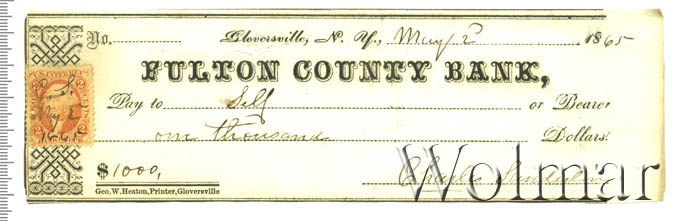 No. Gloversville, N. Y., May 2 1865
FULTON COUNTY BANK,
Pay to Self or Bearer
one thousand Dollars.
$1000, Charles
Geo. W. Heaton, Printer, Gloversville
U.S. INTER. REV.
May 2
1865
Wolmar